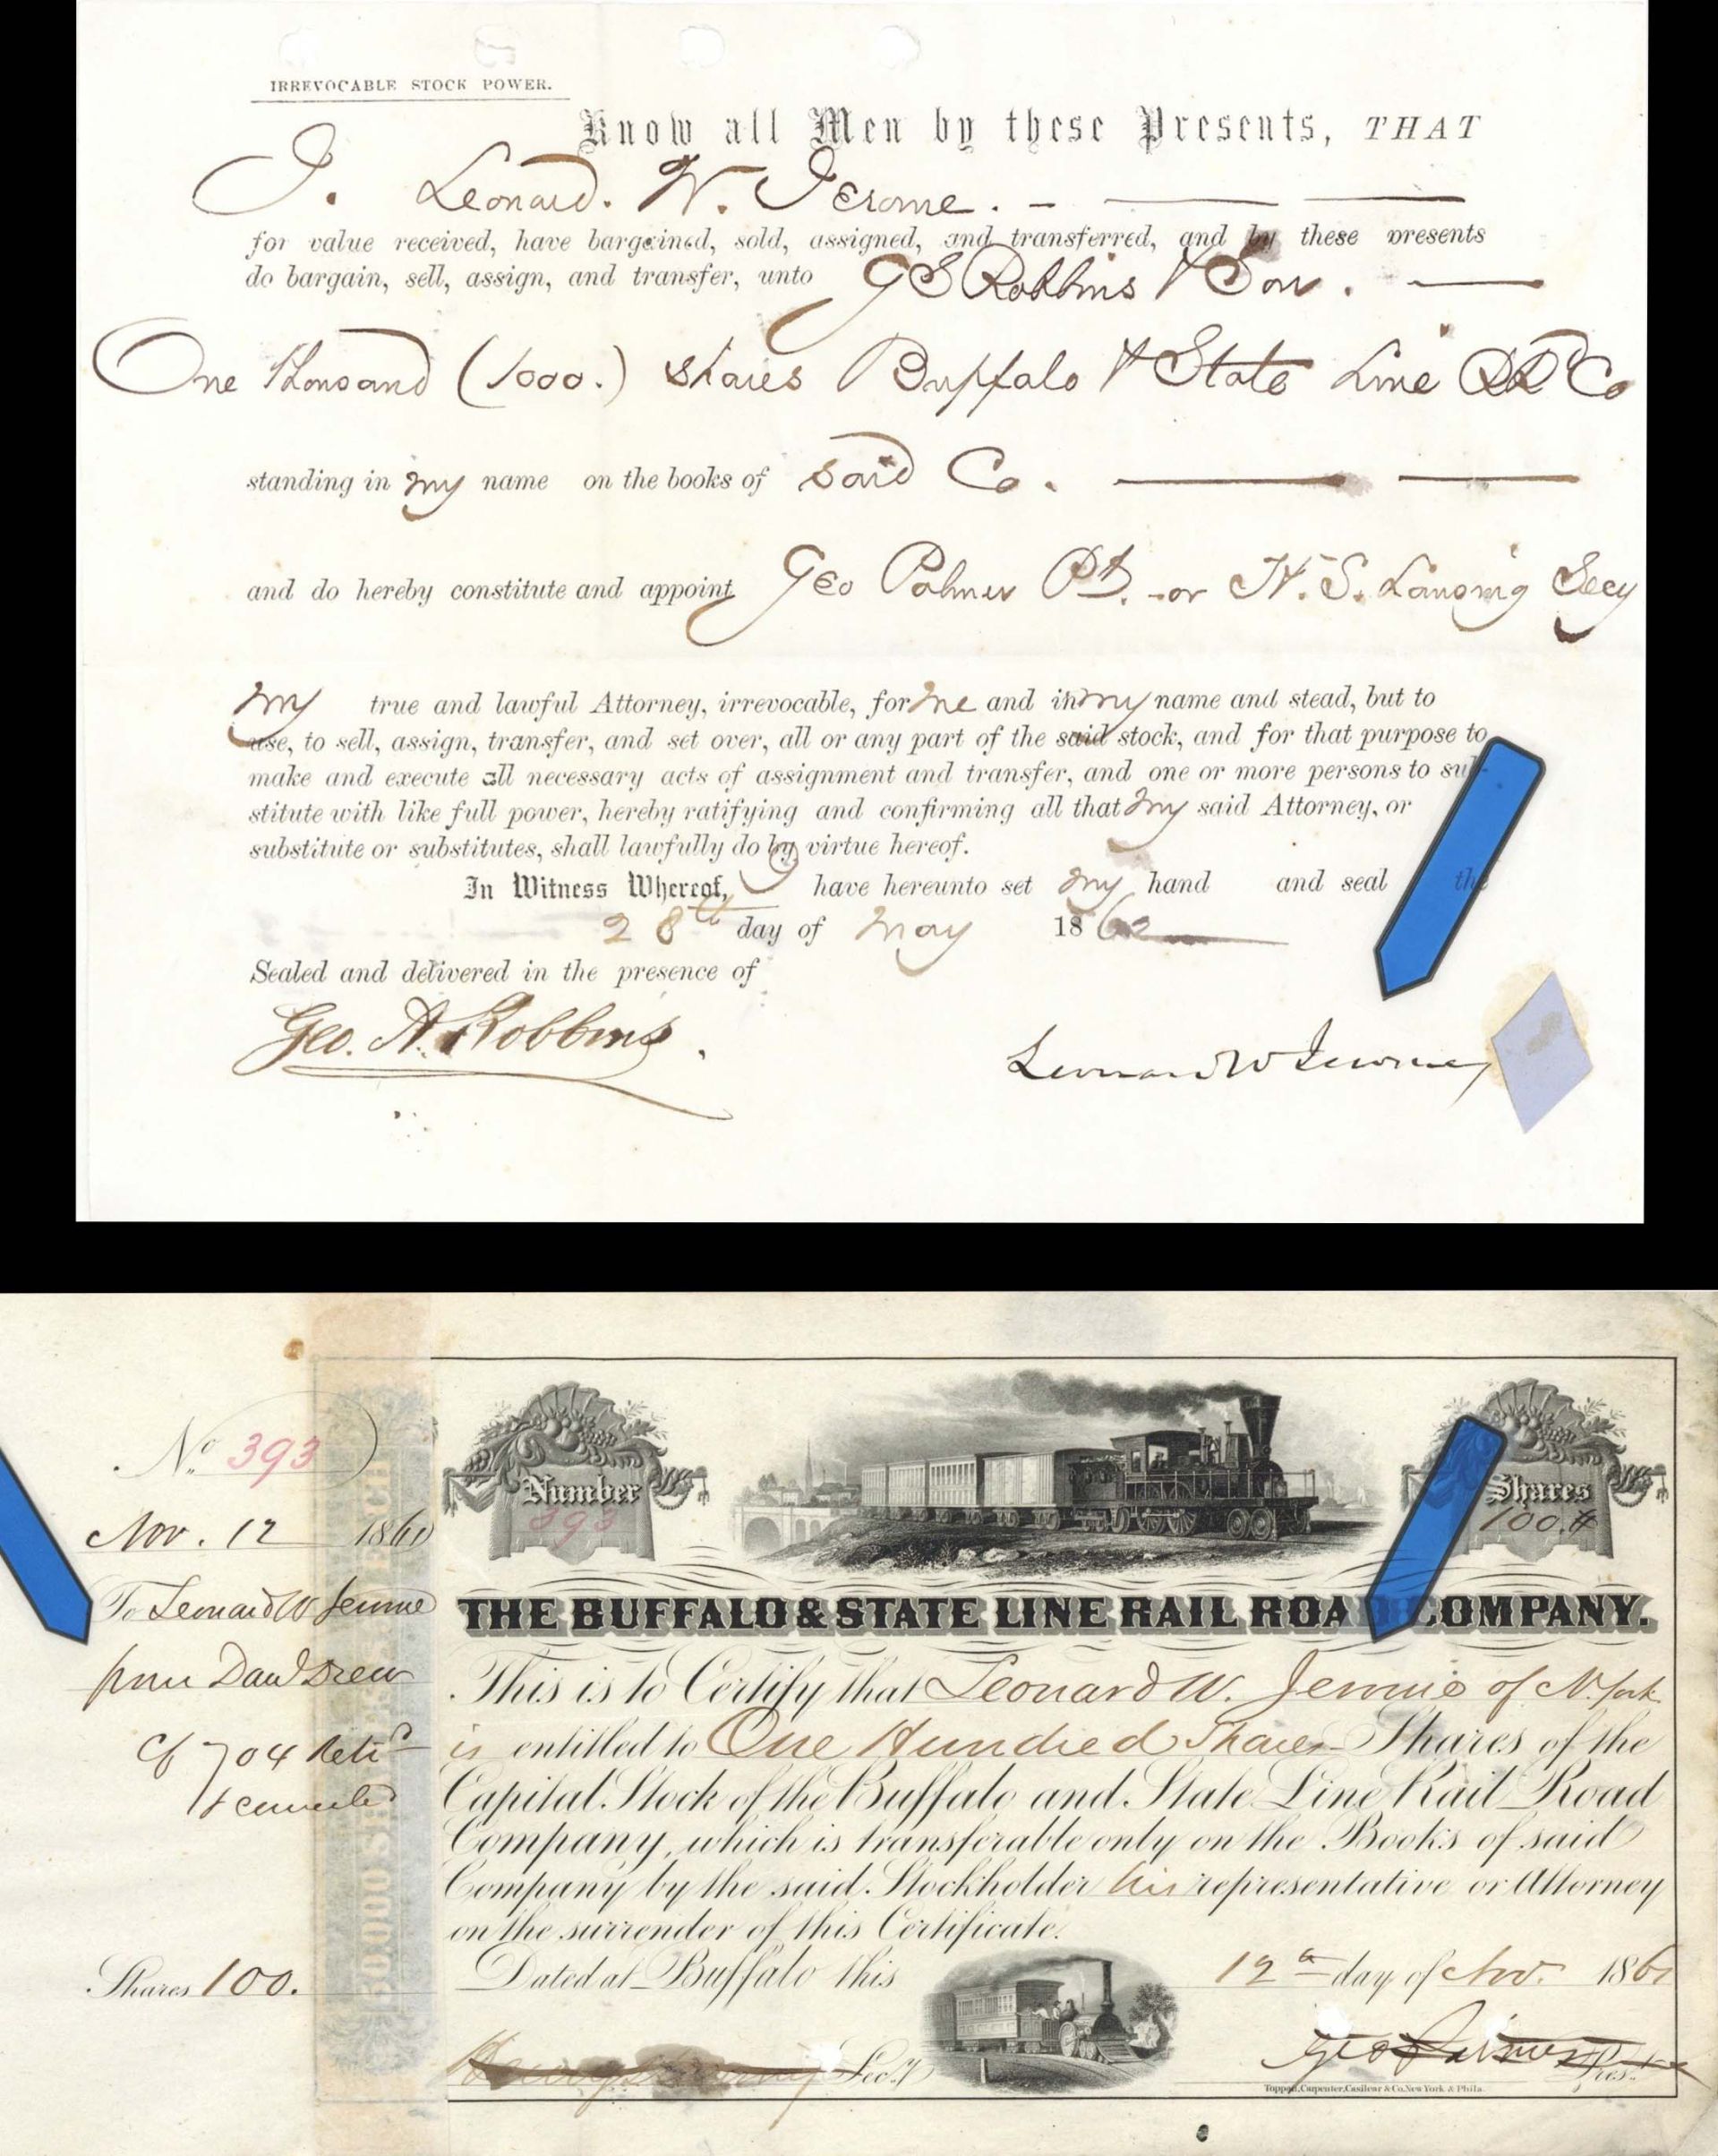 IRREVOCABLE STOCK POWER.
Know all Men by these Presents, THAT
I. Leonard. W. Jerome. -
for value received, have bargained, sold, assigned, and transferred, and by these presents
do bargain, sell, assign, and transfer, unto G S Robbins & Son.
One Thousand (1000.) shares Buffalo & State Line RR Co
standing in my name on the books of said Co.
and do hereby constitute and appoint Geo Palmer Pt. or H. S. Lansing Secy
my true and lawful Attorney, irrevocable, for me and in my name and stead, but to
use, to sell, assign, transfer, and set over, all or any part of the said stock, and for that purpose to
make and execute all necessary acts of assignment and transfer, and one or more persons to sub-
stitute with like full power, hereby ratifying and confirming all that my said Attorney, or
substitute or substitutes, shall lawfully do by virtue hereof.
In Witness Whereof, I have hereunto set my hand and seal the
28th day of May 1862
Sealed and delivered in the presence of
Geo. A. Robbins.
Leonard W Jerome
No 393
Nov. 12 1861
To Leonard W Jerome
from Danl Drew
Cf 704
Shares 100.
50000 SHARES EACH
Number
393
Shares
100.
THE BUFFALO & STATE LINE RAIL ROAD COMPANY.
This is to Certify that Leonard W. Jerome of N. York
is entitled to One Hundred Shares Shares of the
Capital Stock of the Buffalo and State Line Rail Road
Company, which is transferable only on the Books of said
Company by the said Stockholder his representative or Attorney
on the surrender of this Certificate.
Dated at Buffalo this 12th day of Nov. 1861
Secy
Geo Palmer Prest.
Toppan, Carpenter, Casilear & Co. New York & Phila.